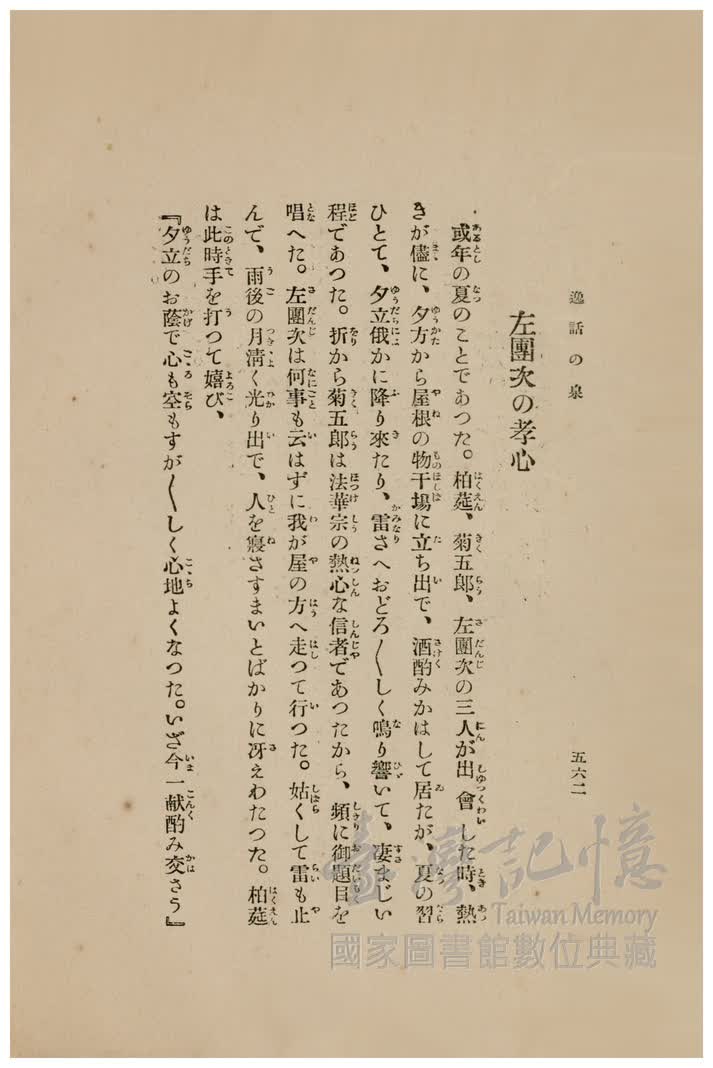 逸話の泉
五六二
左團次の孝心
或年の夏のことであつた。柏莚、菊五郎、左團次の三人が出會した時、熱
さが儘に、夕方から屋根の物干場に立ち出で、酒酌みかはして居たが、夏の習
ひとて、夕立俄かに降り來たり、雷さへおどろ〱しく鳴り響いて、凄まじい
程であつた。折から菊五郎は法華宗の熱心な信者であつたから、頻に御題目を
唱へた。左團次は何事も云はずに我が屋の方へ走つて行つた。姑くして雷も止
んで、雨後の月淸く光り出で、人を寢さすまいとばかりに冴えわたつた。柏莚
は此時手を打つて嬉び、
『夕立のお蔭で心も空もすが〱しく心地よくなつた。いざ今一献酌み交さう』
臺灣記憶
Taiwan Memory
國家圖書館數位典藏